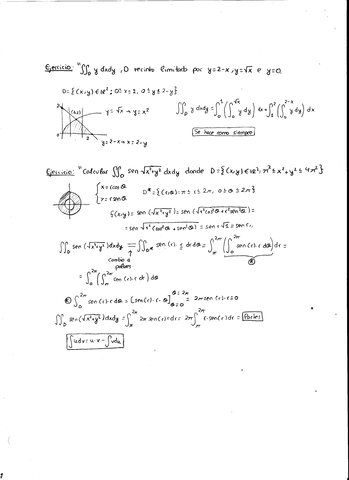 Ejercicio: "∬_D y dxdy, D recinto limitado por y=2-x, y=√x e y=0.
D={(x,y)∈ℝ²; 0≤ x≤ 1, 0≤y≤2-y}
y=√x → y=x²
y=2-x → x=2-y
∬_D y dxdy = ∫_0^1(∫_0^√x y dy) dx + ∫_1^2(∫_0^{2-x} y dy) dx
Se hace como siempre
Ejercicio: "Calcular ∬_D sen √x²+y² dxdy donde D={(x,y)∈ℝ²: π²≤x²+y²≤4π²}
D*={(r,θ): π≤ r≤ 2π, 0≤θ≤2π}
f(x,y)= sen(√x²+y²) = sen(√r²cos²θ+r²sen²θ) =
= sen √r²(cos²θ+sen²θ) = sen √r² = sen r
∬_D sen(√x²+y²)dxdy = ∬_D* sen(r)·r drdθ = ∫_π^2π(∫_0^2π sen(r)·r dθ)dr =
cambio a
polares
= ∫_0^2π(∫_π^2π sen(r)·r dr) dθ
∫_0^2π sen(r)·r dθ = [sen(r)·r·θ]_θ=0^θ=2π = 2π sen(r)·r-0
∬_D sen(√x²+y²)dxdy = ∫_π^2π 2π sen(r)·r dr = 2π∫_π^2π r·sen(r)dr =
∫udv = u·v - ∫vdu